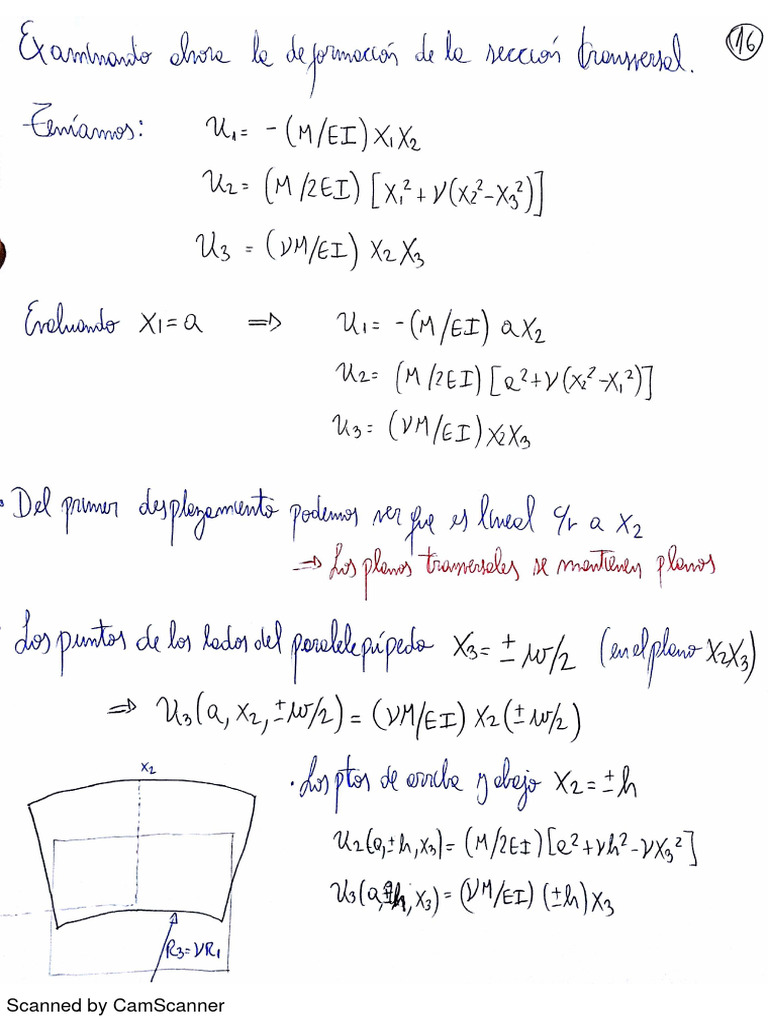 Examinando ahora la deformación de la sección transversal. 16
Teníamos: U1 = -(M/EI) X1X2
U2 = (M/2EI) [X1² + ν(X2² - X3²)]
U3 = (νM/EI) X2X3
Evaluando X1 = a ⇒ U1 = -(M/EI) aX2
U2 = (M/2EI) [a² + ν(X2² - X1²)]
U3 = (νM/EI) X2X3
• Del primer desplazamiento podemos ver que es lineal c/r a X2
⇒ Los planos transversales se mantienen planos
• Los puntos de los lados del paralelepípedo X3 = ± w/2 (en el plano X2X3)
⇒ U3(a, X2, ±w/2) = (νM/EI) X2(±w/2)
• Los ptos de arriba y abajo X2 = ±h
U2(a, ±h, X3) = (M/2EI) [a² + νh² - νX3²]
U3(a, ±h, X3) = (νM/EI) (±h) X3
X2
R3 = νR1
Scanned by CamScanner